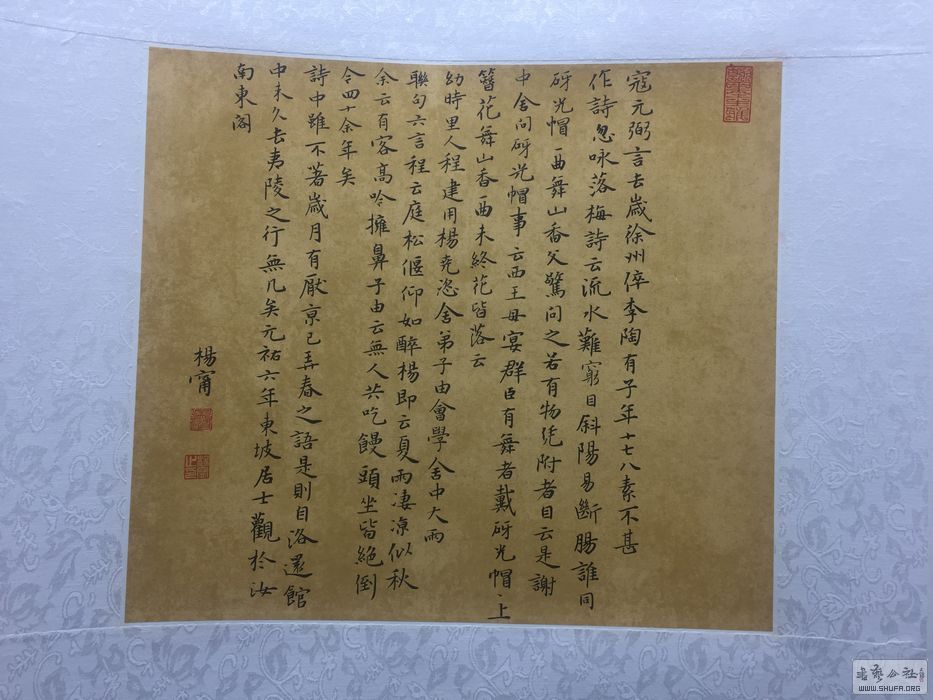 寇元弼言去歲徐州倅李陶有子年十七八素不甚
作詩忽咏落梅詩云流水難窮目斜陽易斷腸誰同
砑光帽一曲舞山香父驚問之若有物凭附者自云是謝
中舍問砑光帽事云西王母宴群臣有舞者戴砑光帽上
簪花舞山香一曲未終花皆落云
幼時里人程建用楊堯咨舍弟子由會學舍中大雨
聯句六言程云庭松偃仰如醉楊即云夏雨淒凉似秋
余云有客高吟擁鼻子由云無人共吃饅頭坐皆絕倒
今四十余年矣
詩中雖不著歲月有厭京已弄春之語是則自洛還館
中未久去夷陵之行無几矣元祐六年東坡居士觀於汝
南東閣
楊甯
書藝公社
WWW.SHUFA.ORG